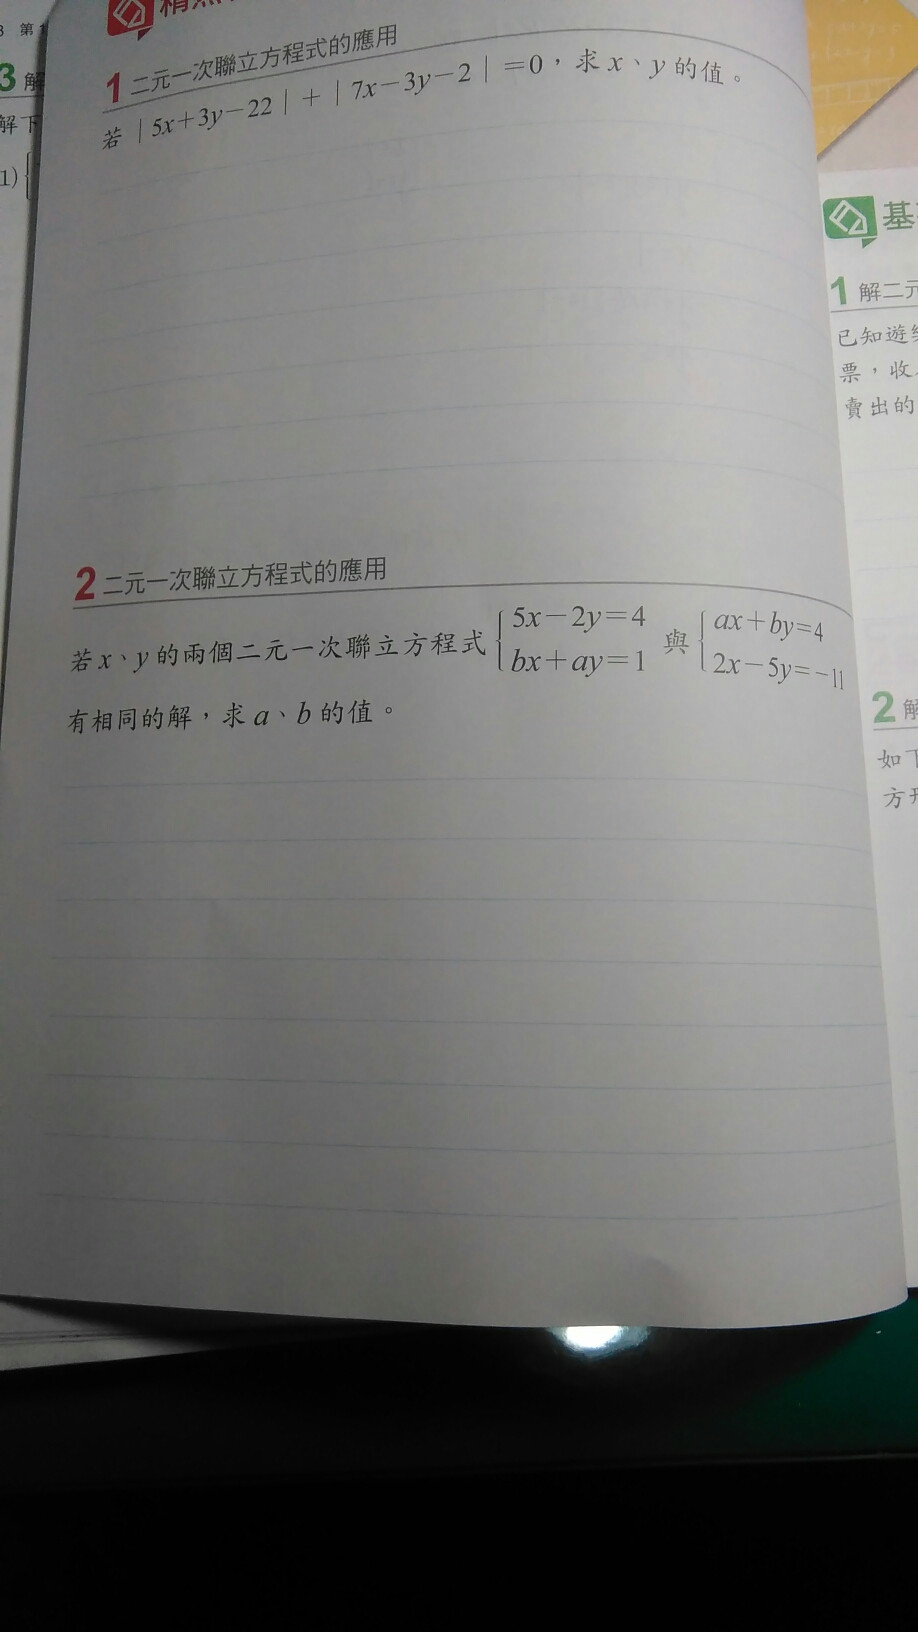 3 第
3 解
解下
1)
1 二元一次聯立方程式的應用
若 | 5x+3y-22 | + | 7x-3y-2 | =0，求 x、y 的值。
2 二元一次聯立方程式的應用
若 x、y 的兩個二元一次聯立方程式 { 5x-2y=4 與 { ax+by=4
bx+ay=1 2x-5y=-11
有相同的解，求 a、b 的值。
基
1 解二元
已知遊
票，收
賣出的
2 解
如下
方形